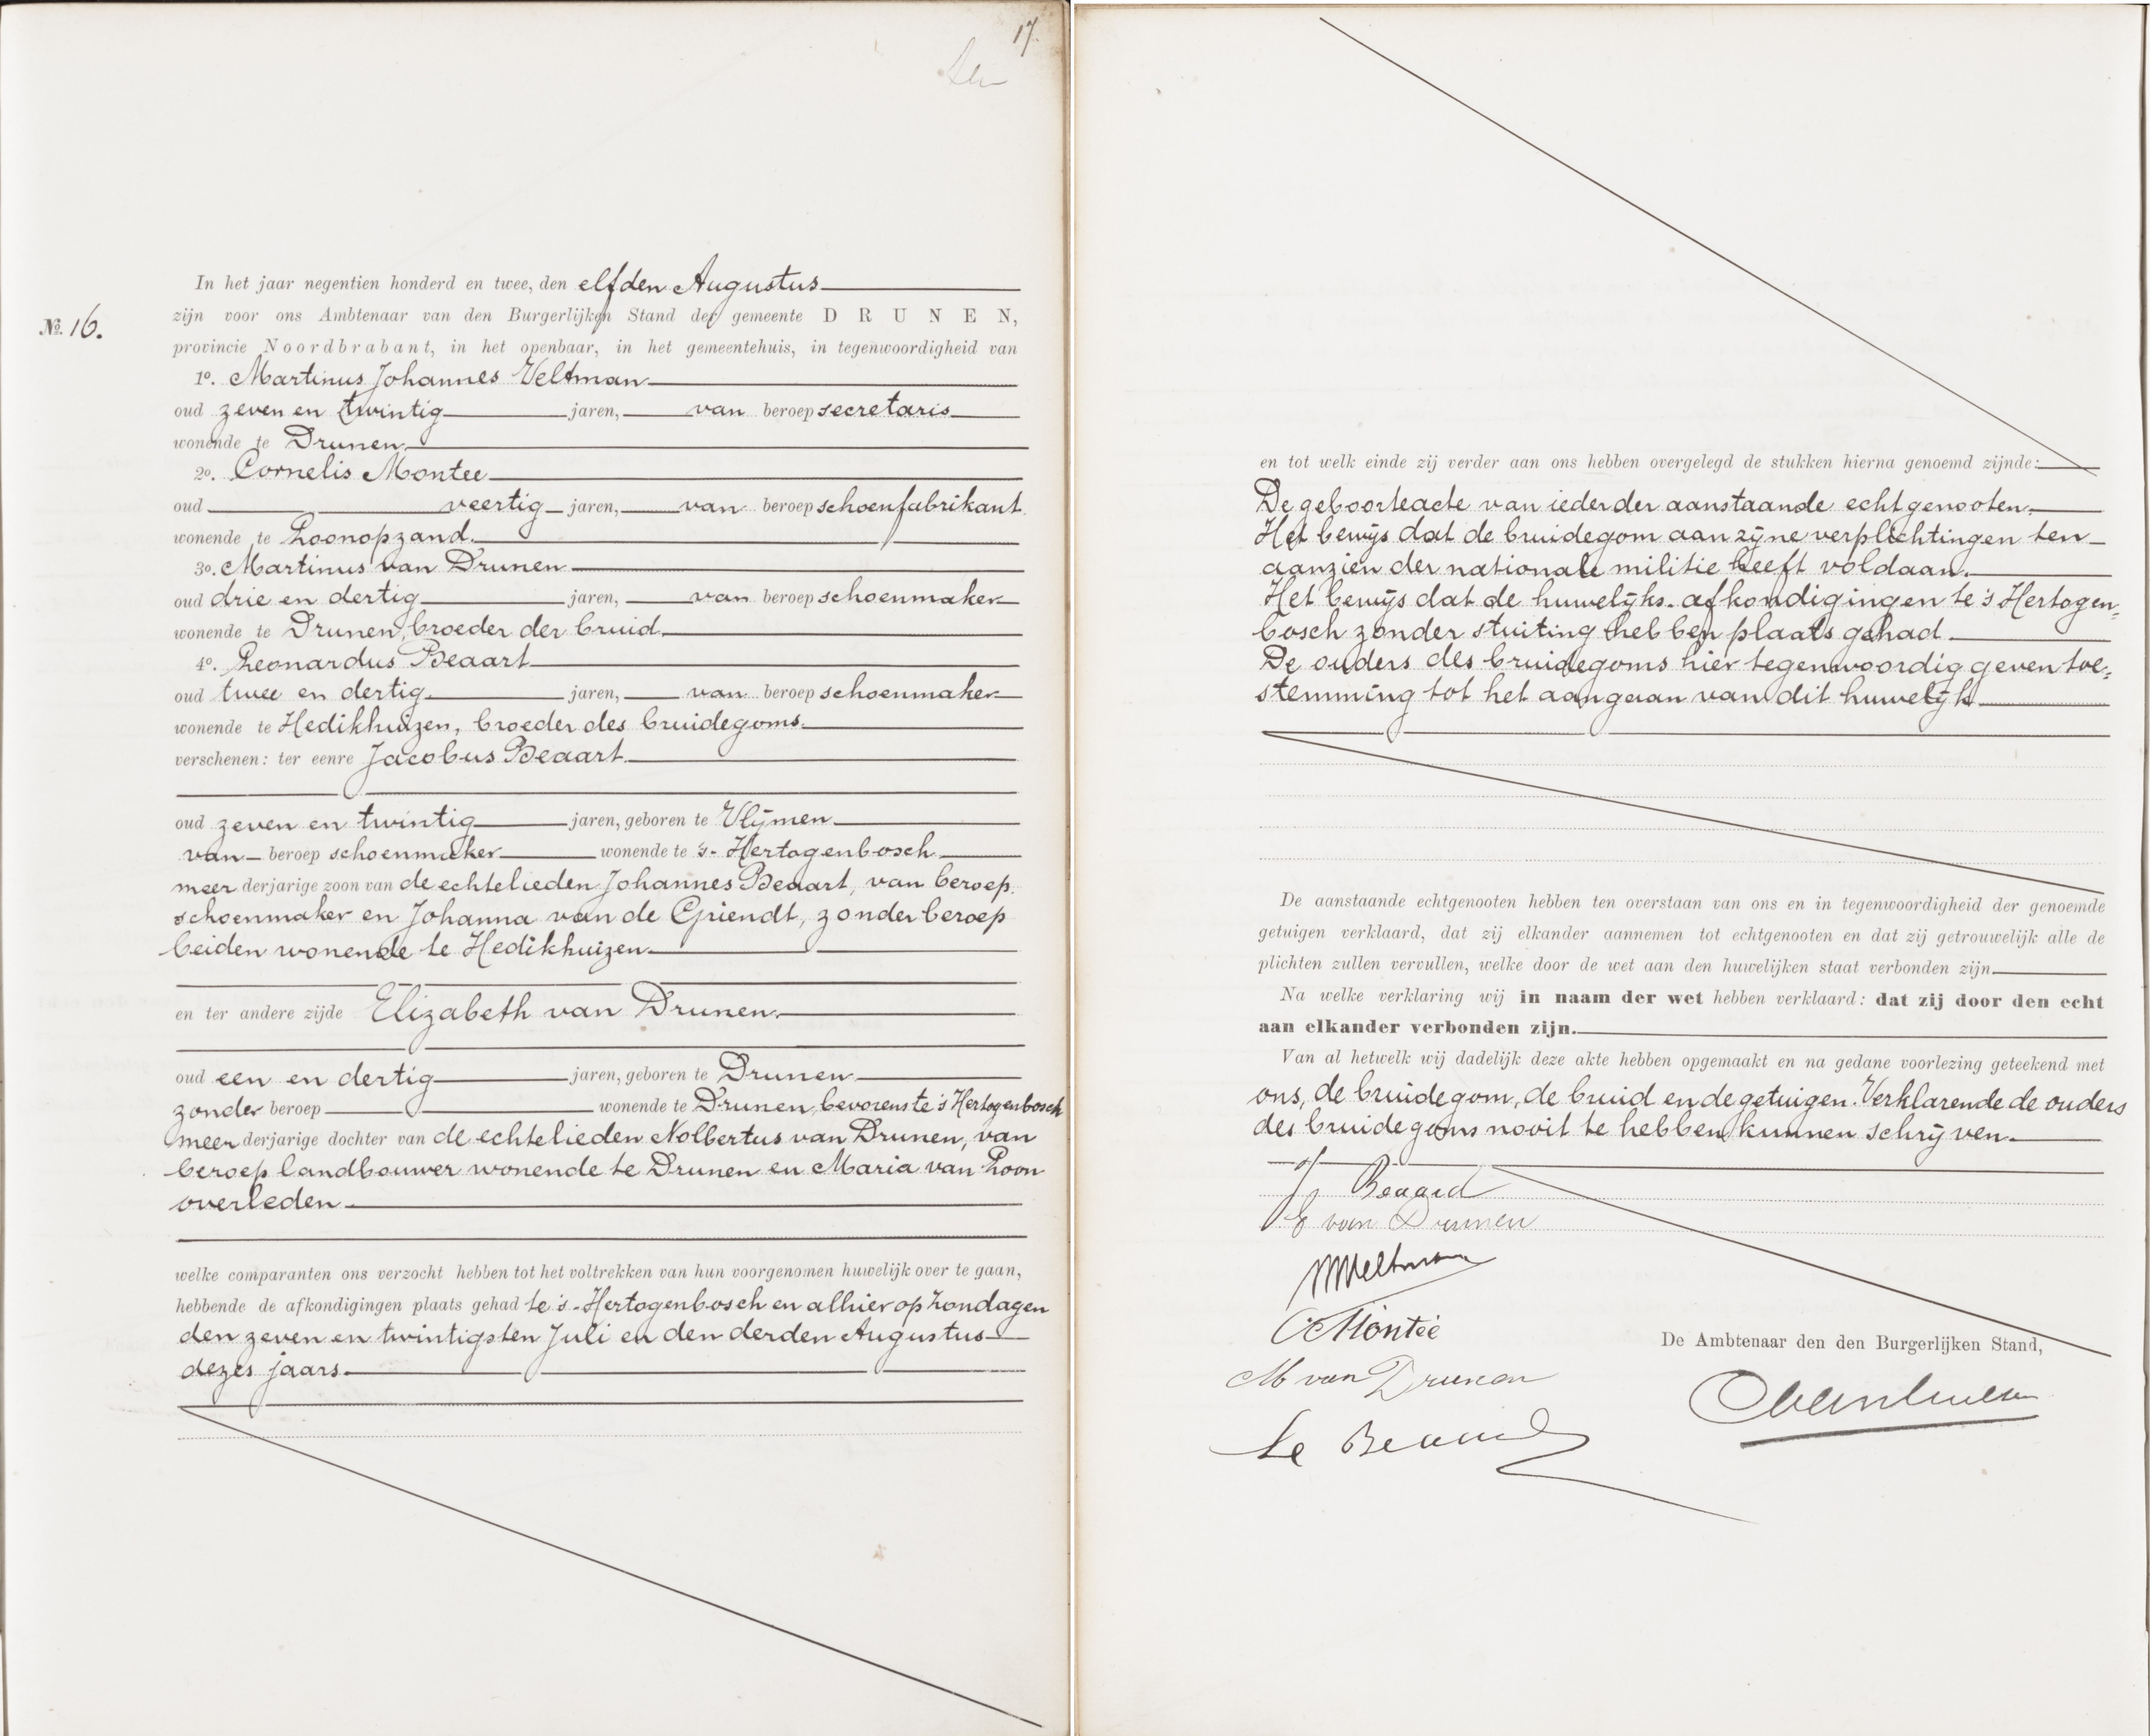 17.
In het jaar negentien honderd en twee, den elfden Augustus
No. 16.
zijn voor ons Ambtenaar van den Burgerlijken Stand der gemeente DRUNEN,
provincie Noordbrabant, in het openbaar, in het gemeentehuis, in tegenwoordigheid van
1o. Martinus Johannes Veltman
oud zeven en twintig jaren, van beroep secretaris
wonende te Drunen
2o. Cornelis Montee
oud veertig jaren, van beroep schoenfabrikant
wonende te Loonopzand.
3o. Martinus van Drunen
oud drie en dertig jaren, van beroep schoenmaker
wonende te Drunen, broeder der bruid.
4o. Leonardus Beaart
oud twee en dertig jaren, van beroep schoenmaker
wonende te Hedikhuizen, broeder des bruidegoms.
verschenen: ter eenre Jacobus Beaart
oud zeven en twintig jaren, geboren te Vlijmen
van beroep schoenmaker wonende te 's-Hertogenbosch
meerderjarige zoon van de echtelieden Johannes Beaart, van beroep
schoenmaker en Johanna van de Griendt, zonder beroep
beiden wonende te Hedikhuizen
en ter andere zijde Elizabeth van Drunen
oud een en dertig jaren, geboren te Drunen
zonder beroep wonende te Drunen, bevorens te 's Hertogenbosch
meerderjarige dochter van de echtelieden Nolbertus van Drunen, van
beroep landbouwer wonende te Drunen en Maria van Loon
overleden
welke comparanten ons verzocht hebben tot het voltrekken van hun voorgenomen huwelijk over te gaan,
hebbende de afkondigingen plaats gehad te 's-Hertogenbosch en alhier op Zondagen
den zeven en twintigsten Juli en den derden Augustus
dezes jaars
en tot welk einde zij verder aan ons hebben overgelegd de stukken hierna genoemd zijnde:
De geboorteacte van ieder der aanstaande echtgenooten.
Het bewijs dat de bruidegom aan zijne verplichtingen ten
aanzien der nationale militie heeft voldaan.
Het bewijs dat de huwelijks-afkondigingen te 's Hertogen=
bosch zonder stuiting hebben plaats gehad
De ouders des bruidegoms hier tegenwoordig geven toe=
stemming tot het aangaan van dit huwelijk
De aanstaande echtgenooten hebben ten overstaan van ons en in tegenwoordigheid der genoemde
getuigen verklaard, dat zij elkander aannemen tot echtgenooten en dat zij getrouwelijk alle de
plichten zullen vervullen, welke door de wet aan den huwelijken staat verbonden zijn.
Na welke verklaring wij in naam der wet hebben verklaard: dat zij door den echt
aan elkander verbonden zijn.
Van al hetwelk wij dadelijk deze akte hebben opgemaakt en na gedane voorlezing geteekend met
ons, de bruidegom, de bruid en de getuigen. Verklarende de ouders
des bruidegoms nooit te hebben kunnen schrijven.
J Beaard
E van Drunen
MJVeltman
C Montée
M van Drunen
De Ambtenaar den den Burgerlijken Stand,
Le Beaard